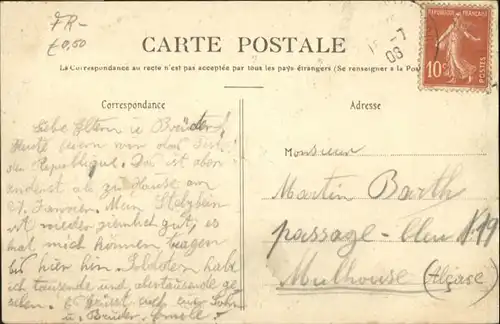 FR-
€0,50
CARTE POSTALE
La Correspondance au recto n'est pas acceptée par tous les pays étrangers (Se renseigner à la Poste
RÉPUBLIQUE FRANÇAISE
10c
POSTES
-7
08
Correspondance
Adresse
Liebe Eltern u Brüder!
Heute feiern wir das Fest
der Republique. Da ist aber
anderst als zu Hause am
1. Januar. Mein
ist wieder ziemlich gut; es
hat mich können tragen
bis hier hin. Soldaten habe
ich tausende und abertausende ge
sehen. Es grüsst euch euer Sohn
u. Bruder.
Monsieur
Martin Barth
passage-bleu N.19
Mulhouse (Alsace)